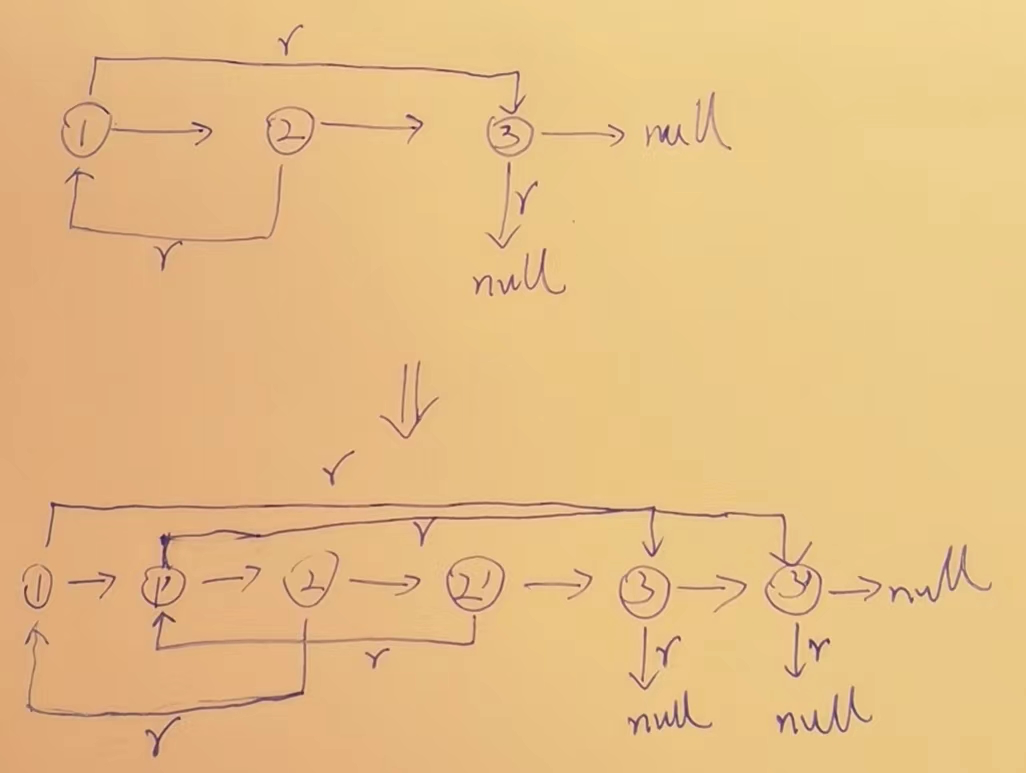 r
1 → 2 → 3 → null
r r
null
⇓
r
r
1 → 1' → 2 → 2' → 3 → 3' → null
r r r
null null
r